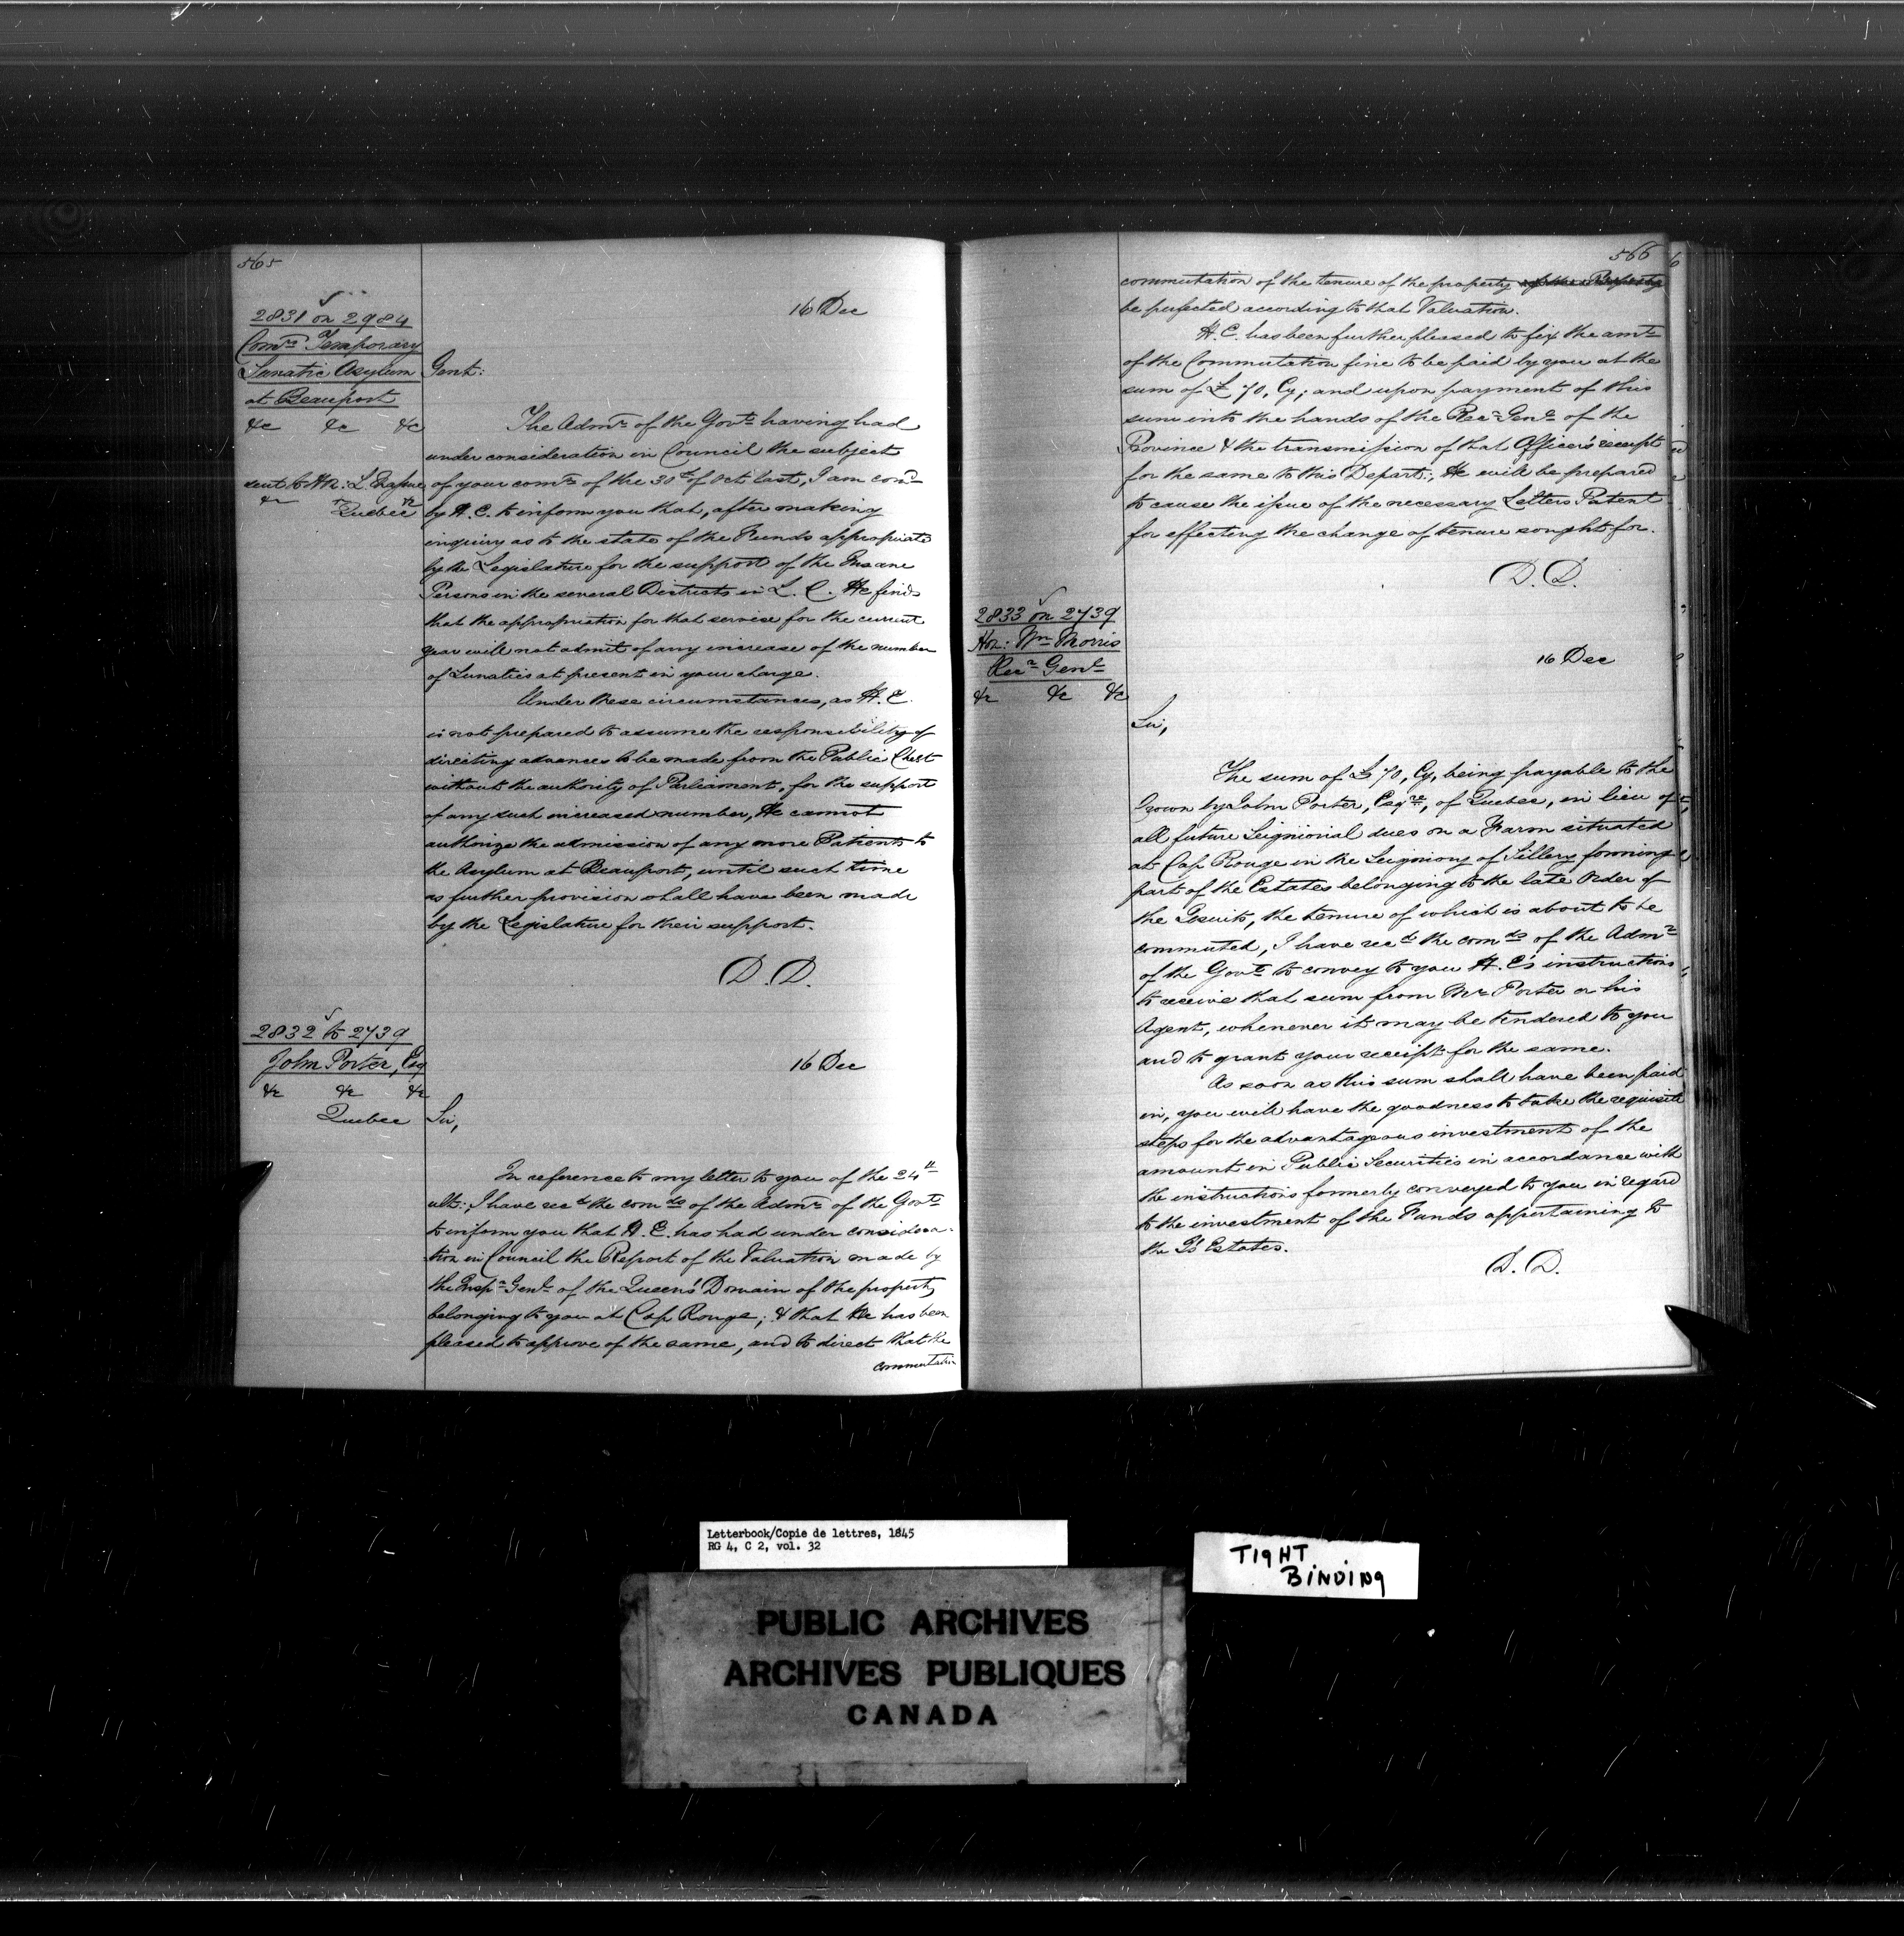 565
2831 on 2984
Comrs Temporary
Lunatic Asylum
at Beauport
&c &c &c
sent to Hn: L.
&c &c &c
Quebec
16 Dec
Gent:
The Admr of the Govt having had
under consideration in Council the subject
of your comn of the 30th of Oct last, I am comd
by H. E. to inform you that, after making
inquiry as to the state of the Funds appropriated
by the Legislature for the support of the Insane
Persons in the several Districts in L. C. He finds
that the appropriation for that service for the current
year will not admit of any increase of the number
of Lunatics at present in your charge.
Under these circumstances, as H. E.
is not prepared to assume the responsibility of
directing advances to be made from the Public Chest
without the authority of Parliament, for the support
of any such increased number, He cannot
authorize the admission of any more Patients to
the Asylum at Beauport, until such time
as further provision shall have been made
by the Legislature for their support.
D. D.
2832 to 2739
John Porter, Esq
&c &c &c
Quebec
16 Dec
Sir,
In reference to my letter to you of the 24th
ult:, I have recd the comds of the Admr of the Govt
to inform you that H. E. has had under considera-
tion in Council the Report of the Valuation made by
the Inspr Genl of the Queen's Domain of the property
belonging to you at Cap Rouge; & that He has been
pleased to approve of the same, and to direct that the
commutation
566
commutation of the tenure of the property of the Property
be perfected according to that Valuation.
H. E. has been further pleased to fix the amt
of the Commutation fine to be paid by you at the
sum of £70, Cy; and upon payment of this
sum into the hands of the Recr Genl of the
Province & the transmission of that Officer's receipt
for the same to this Depart:, He will be prepared
to cause the issue of the necessary Letters Patent
for effecting the change of tenure sought for.
D. D.
2833 on 2739
Hn: Wm Morris
Recr Genl
&c &c &c
16 Dec
Sir,
The sum of £70, Cy, being payable to the
Crown by John Porter, Esqre, of Quebec, in lieu of
all future Seigniorial dues on a Farm situated
at Cap Rouge in the Seigniory of Sillery forming
part of the Estates belonging to the late Order of
the Jesuits, the tenure of which is about to be
commuted, I have recd the comds of the Admr
of the Govt to convey to you H. E's instructions
to receive that sum from Mr Porter or his
Agent, whenever it may be tendered to you
and to grant your receipt for the same.
As soon as this sum shall have been paid
in, you will have the goodness to take the requisite
steps for the advantageous investment of the
amount in Public Securities in accordance with
the instructions formerly conveyed to you in regard
to the investment of the Funds appertaining to
the Js Estates.
D. D.
Letterbook/Copie de lettres, 1845
RG 4, C 2, vol. 32
TIGHT
BINDING
PUBLIC ARCHIVES
ARCHIVES PUBLIQUES
CANADA